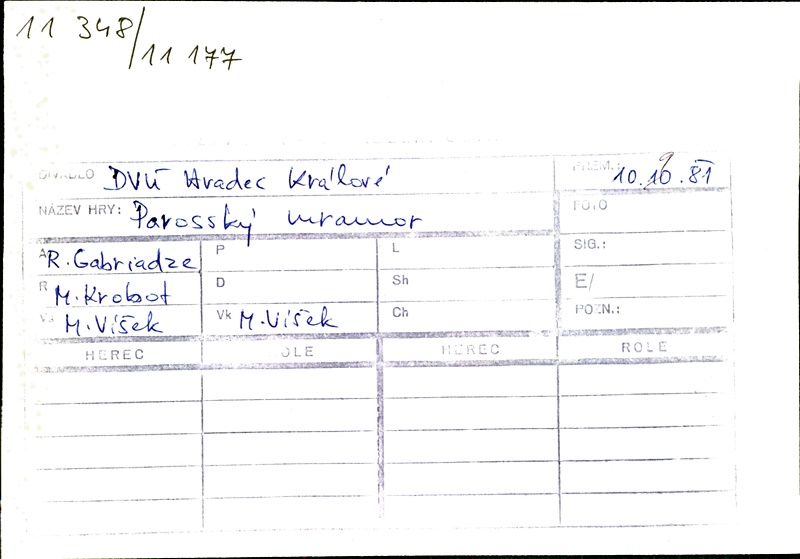 11 348/
11 177
DIVADLO DVÚ Hradec Králové PREM.: 10.10.81
9
NÁZEV HRY: Parosský mramor FOTO
A R. Gabriadze P L SIG.:
R M. Krobot D Sh E/
V M. Víšek Vk M. Víšek Ch POZN.:
HEREC ROLE HEREC ROLE